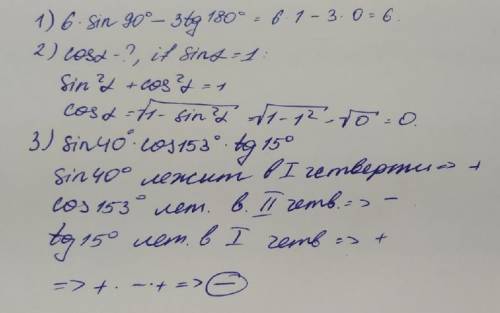 1) 6 · sin 90° − 3tg 180° = 6 · 1 − 3 · 0 = 6.
2) cosα - ?, if sinα = 1:
sin²α + cos²α = 1
cosα = √1 − sin²α = √1 − 1² = √0 = 0.
3) sin40° · cos153° · tg15°
sin40° лежит в I четверти => +
cos153° леж. в. II четв. => −
tg15° леж. в I четв => +
=> + · − · + => −